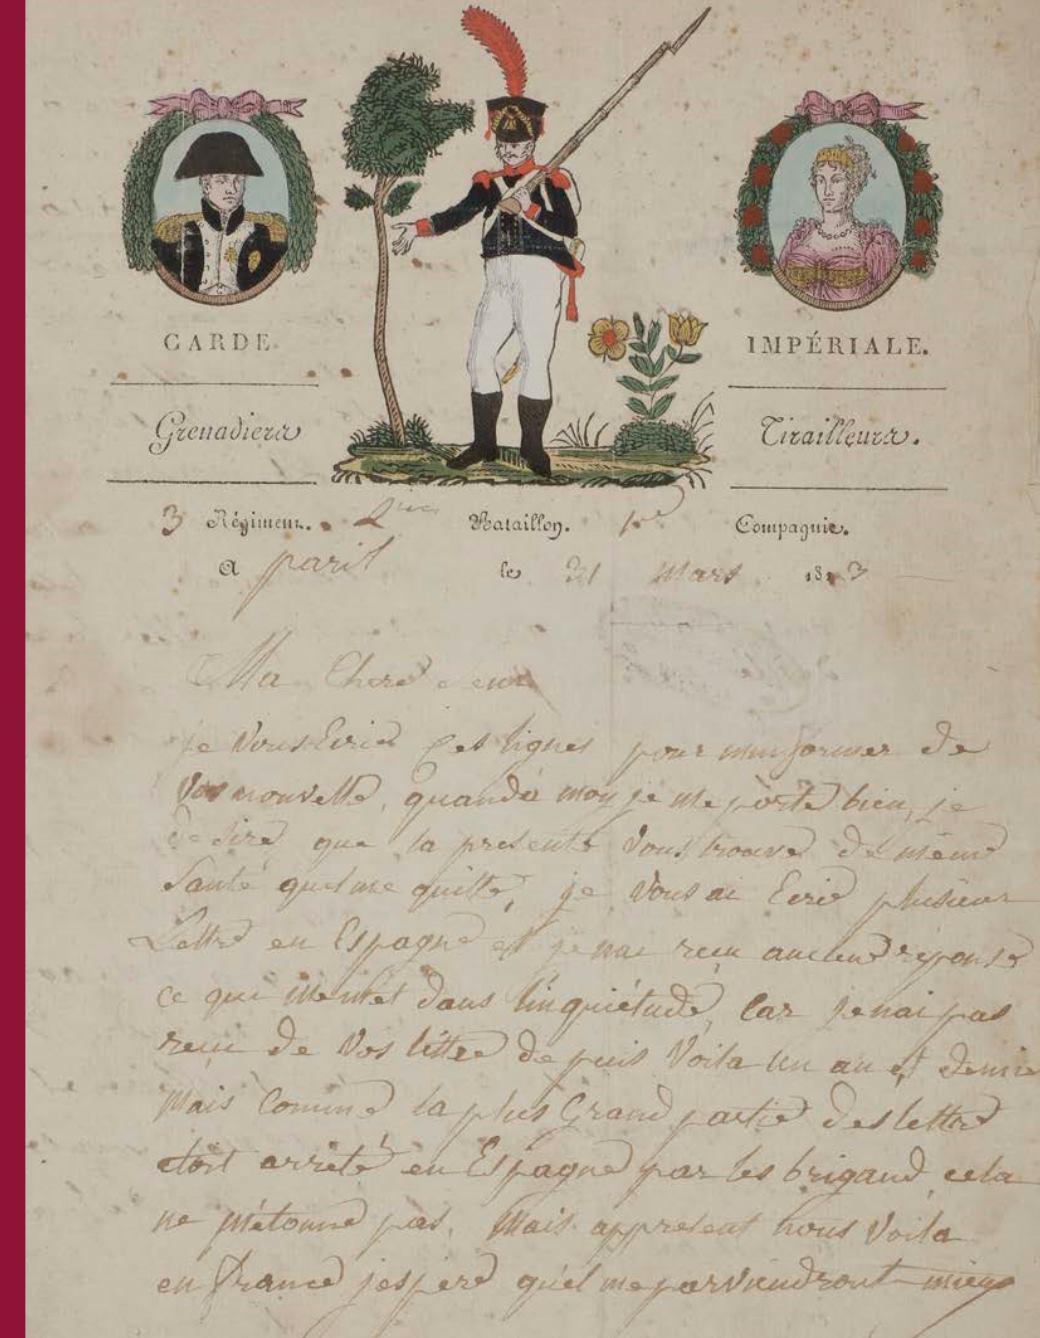 GARDE IMPÉRIALE.
Grenadiers Tirailleurs.
3 Régiment. 2me Bataillon. 1re Compagnie.
A paris le 31 Mars 1813
Ma Chere Seur
je Vous Ecrie Ces lignes pour minformer de
Vos nouvelle, quande moy je me porte bien, je
desire que la presente Vous trouve de même
Santé quel me quitte, je Vous ai Ecrie plusieur
Lettre en Espagne et je nai recu aucune réponse
ce qui me met dans linquiétude, Car je nai pas
recu de Vos lettre de puis Voila un an et demie
Mais Comme la plus Grand partie des lettre
etoit arrêté en Espagne par les brigand, cela
ne métonne pas. Mais appresent nous Voila
en France jespere quel me parviendront mieux